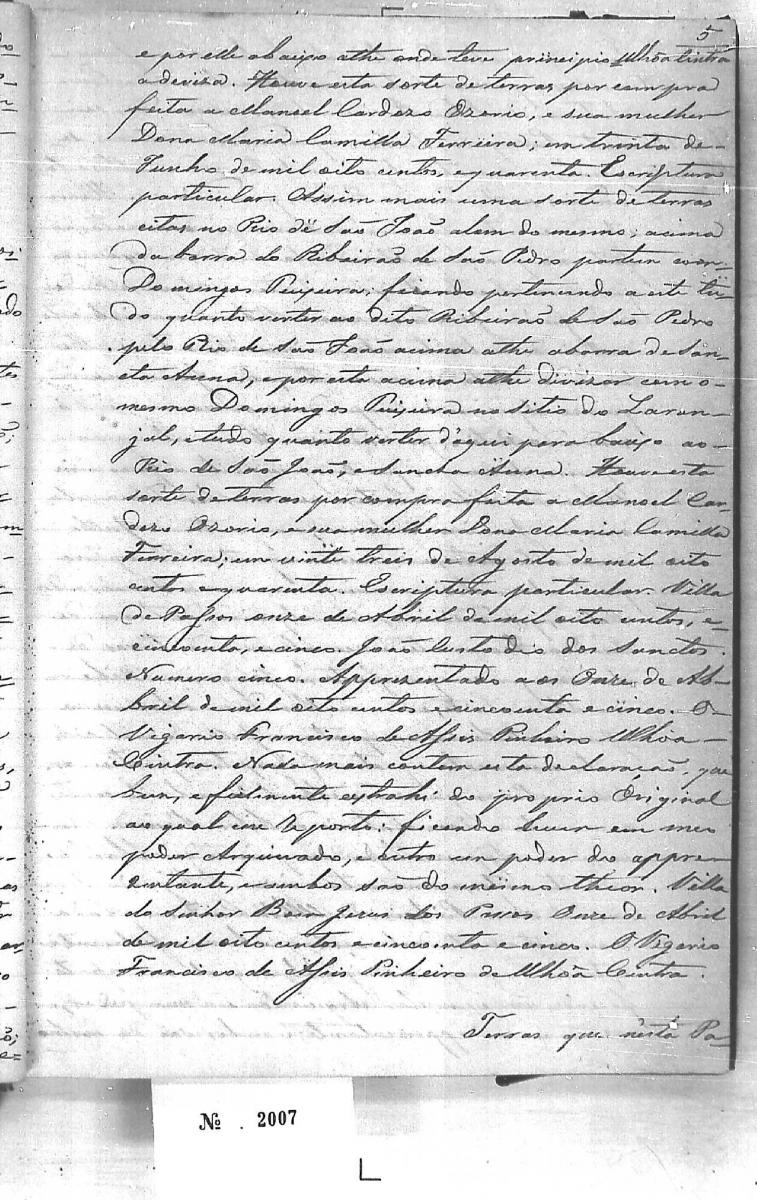 5
e por elle abaixo athe onde teve principio Ulhôa Cintra
a deviza. Houve esta sorte de terras por compra
feita a Manoel Cardozo Ozorio, e sua mulher
Dona Maria Camilla Ferreira; em trinta de
Junho de mil oito centos, e quarenta. Escriptura
particular. Assim mais uma sorte de terras
citas no Rio de São João alem do mesmo; acima
da barra do Ribeirão de São Pedro partem com
Domingos Peixeira; ficando pertencendo a este tu-
do quanto verter ao dito Ribeirão de São Pedro
pelo Rio de São João acima athe a barra de San-
cta Anna, e por esta acima athe divizar com o
mesmo Domingos Peixeira no sitio do Laran-
jal, e tudo quanto verter d'aqui para baixo ao
Rio de São João, e Sancta Anna. Houve esta
sorte de terras por compra feita a Manoel Car-
dozo Ozorio, e sua mulher Dona Maria Camilla
Ferreira; em vinte treis de Agosto de mil oito
centos e quarenta. Escriptura particular. Villa
de Passos onze de Abril de mil oito centos, e
cincoenta, e cinco. João Custodio dos Sanctos.
Numero cinco. Appresentado aos Onze de Ab-
bril de mil oito centos e cincoenta e cinco. O
Vigario Francisco de Assis Pinheiro Ulhôa
Cintra. Nada mais contem esta declaração, que
bem, e fielmente extrahi do proprio Original
ao qual me reporto; ficando hum em meu
poder Arquivado, e outro em poder do appre-
zentante, e ambos são do mesmo theor. Villa
do Senhor Bom Jezus dos Passos Onze de Abril
de mil oito centos e cincoenta e cinco. O Vigario
Francisco de Assis Pinheiro de Ulhôa Cintra.
Terras que nesta Pa-
№ . 2007